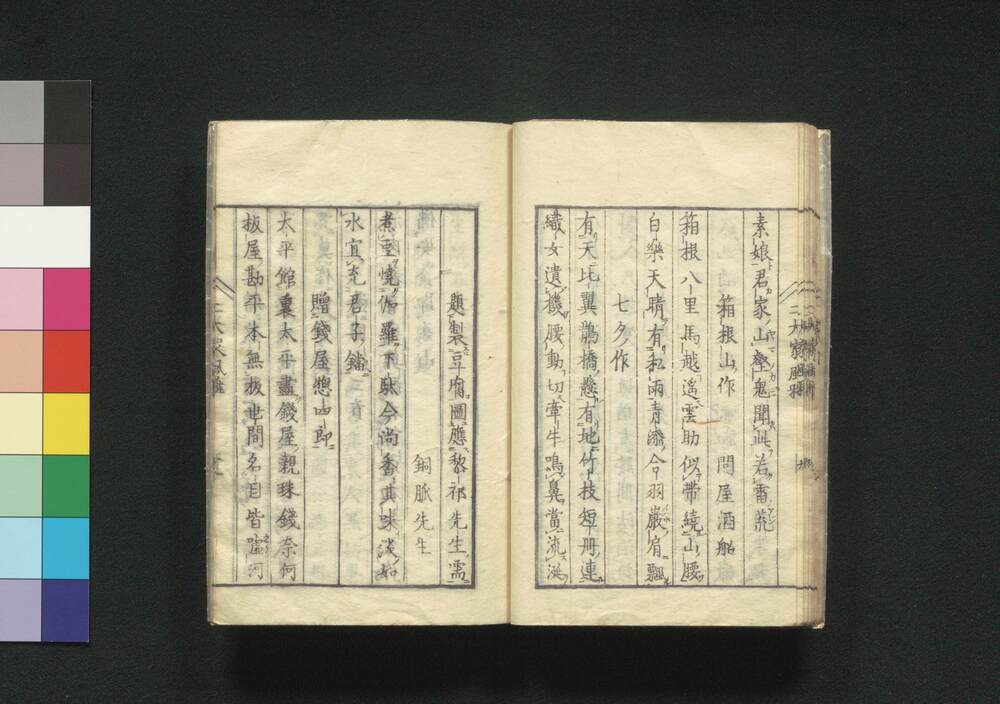 素娘君家山塾鬼聞此若雷荒
箱根山作 問屋酒船
箱根八里馬越遙雲助似帶繞山腰
白樂天晴有私雨青 令羽嚴肩飄
七夕作
有天比翼鵲橋懸有地竹枝短冊連
織女遺機腰動切牽牛鳴鼻當流涎
二大家風雅
題製豆腐圖應黎祁先生需
銅脈先生
煮豆燒伽羅下馱今尚香其味淡如
水宜充君子鐺
贈錢屋惣四郎
太平館裏太平盡錢屋親珠錢奈何
板屋勘平本無板世間名目皆噓河
二大家風雅